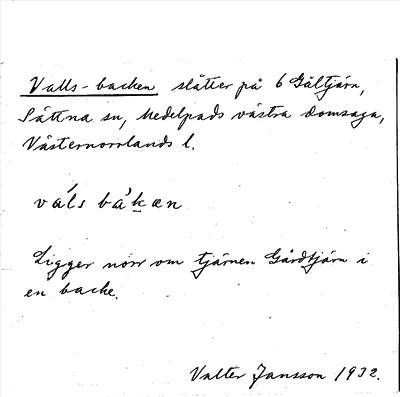 Valls-backen slåtter på 6 Gåltjärn,
Sättna sn, Medelpads västra domsaga,
Västernorrlands l.
váls bàk̠æn
Ligger norr om tjärnen Gårdtjärn i
en backe.
Valter Jansson 1932.